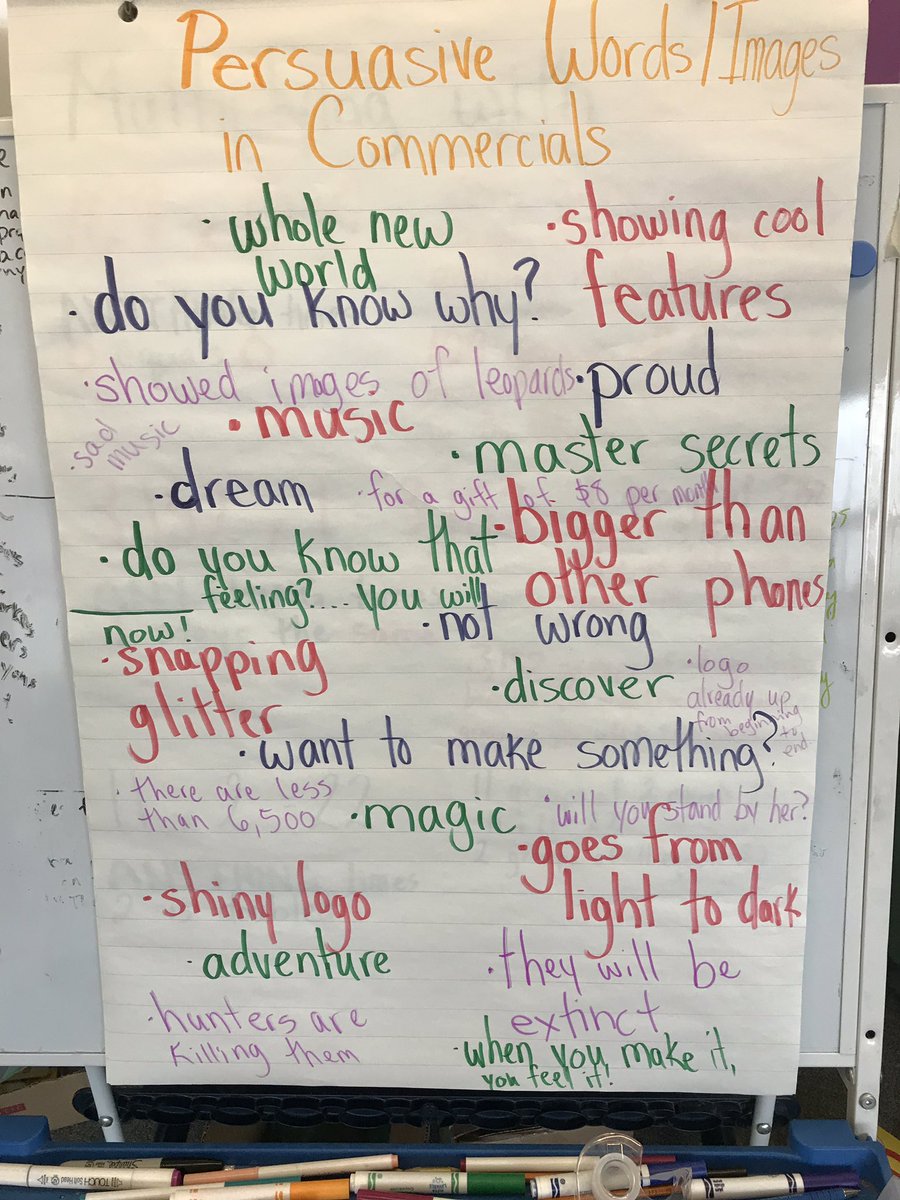 Persuasive Words/Images
in Commercials
· whole new
world
· showing cool
features
· do you know why?
· showed images of leopards
· proud
· sad
music
· music
· master secrets
· dream
· for a gift of $8 per month
· bigger than
other phones
· do you know that
______ feeling?.... you will
now!
· not wrong
· snapping
glitter
· discover
· logo
already up
from beginning
to
end
· want to make something?
· there are less
than 6,500
· magic
· will you stand by her?
· goes from
light to dark
· shiny logo
· adventure
· they will be
extinct
· hunters are
killing them
· when you make it,
you feel it!
TOUCH